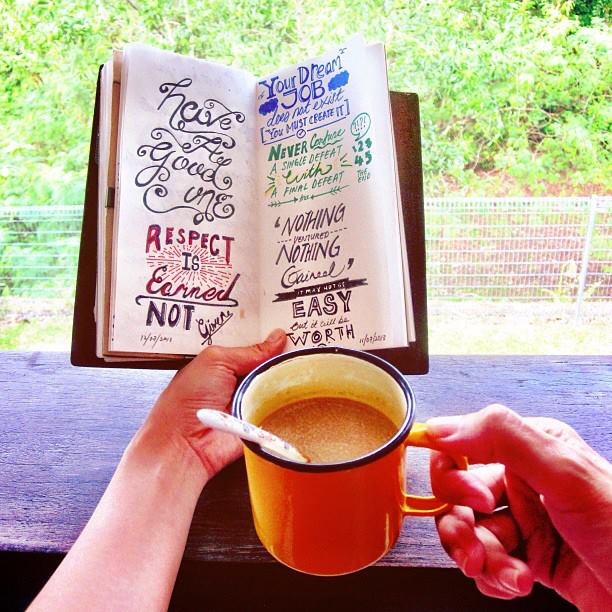 have
A
Good
one
RESPECT
IS
Earned
NOT Given
12/07/2013
"Your Dream
JOB
does not exist
[YOU MUST CREATE IT]
NEVER Confuse
A SINGLE DEFEAT
with
A FINAL DEFEAT
TIP!
1 2 3
4 5
THE
END
"NOTHING
VENTURED
NOTHING
Gained"
IT MAY NOT BE
EASY
But it will be
WORTH
11/07/2013